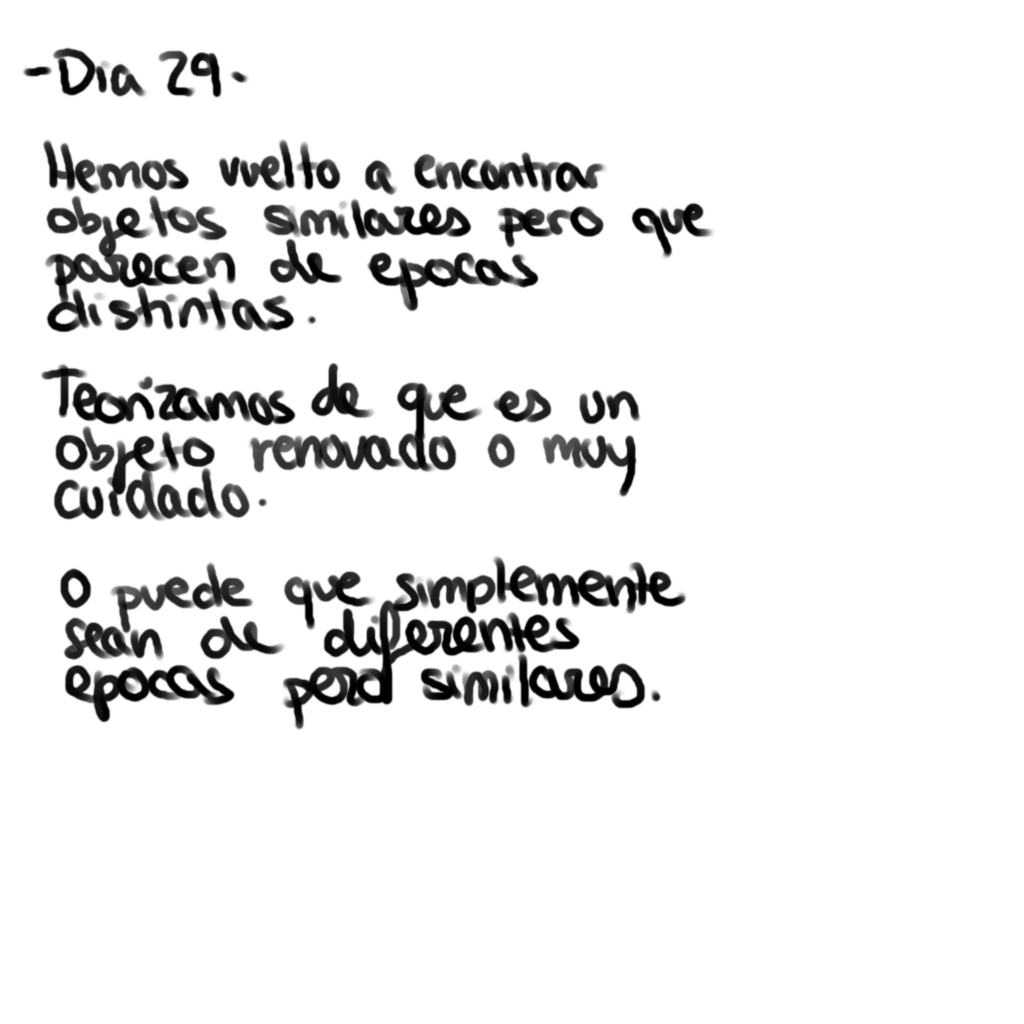 -Dia 29.
Hemos vuelto a encontrar
objetos similares pero que
parecen de epocas
distintas.
Teorizamos de que es un
objeto renovado o muy
cuidado.
O puede que simplemente
sean de diferentes
epocas pero similares.